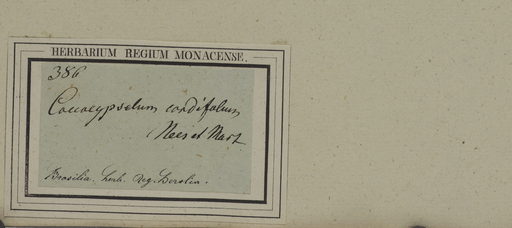 HERBARIUM REGIUM MONACENSE.
386
Coccocypselum cordifolium
Nees et Mart
Brasilia. herb. reg. Berolin.